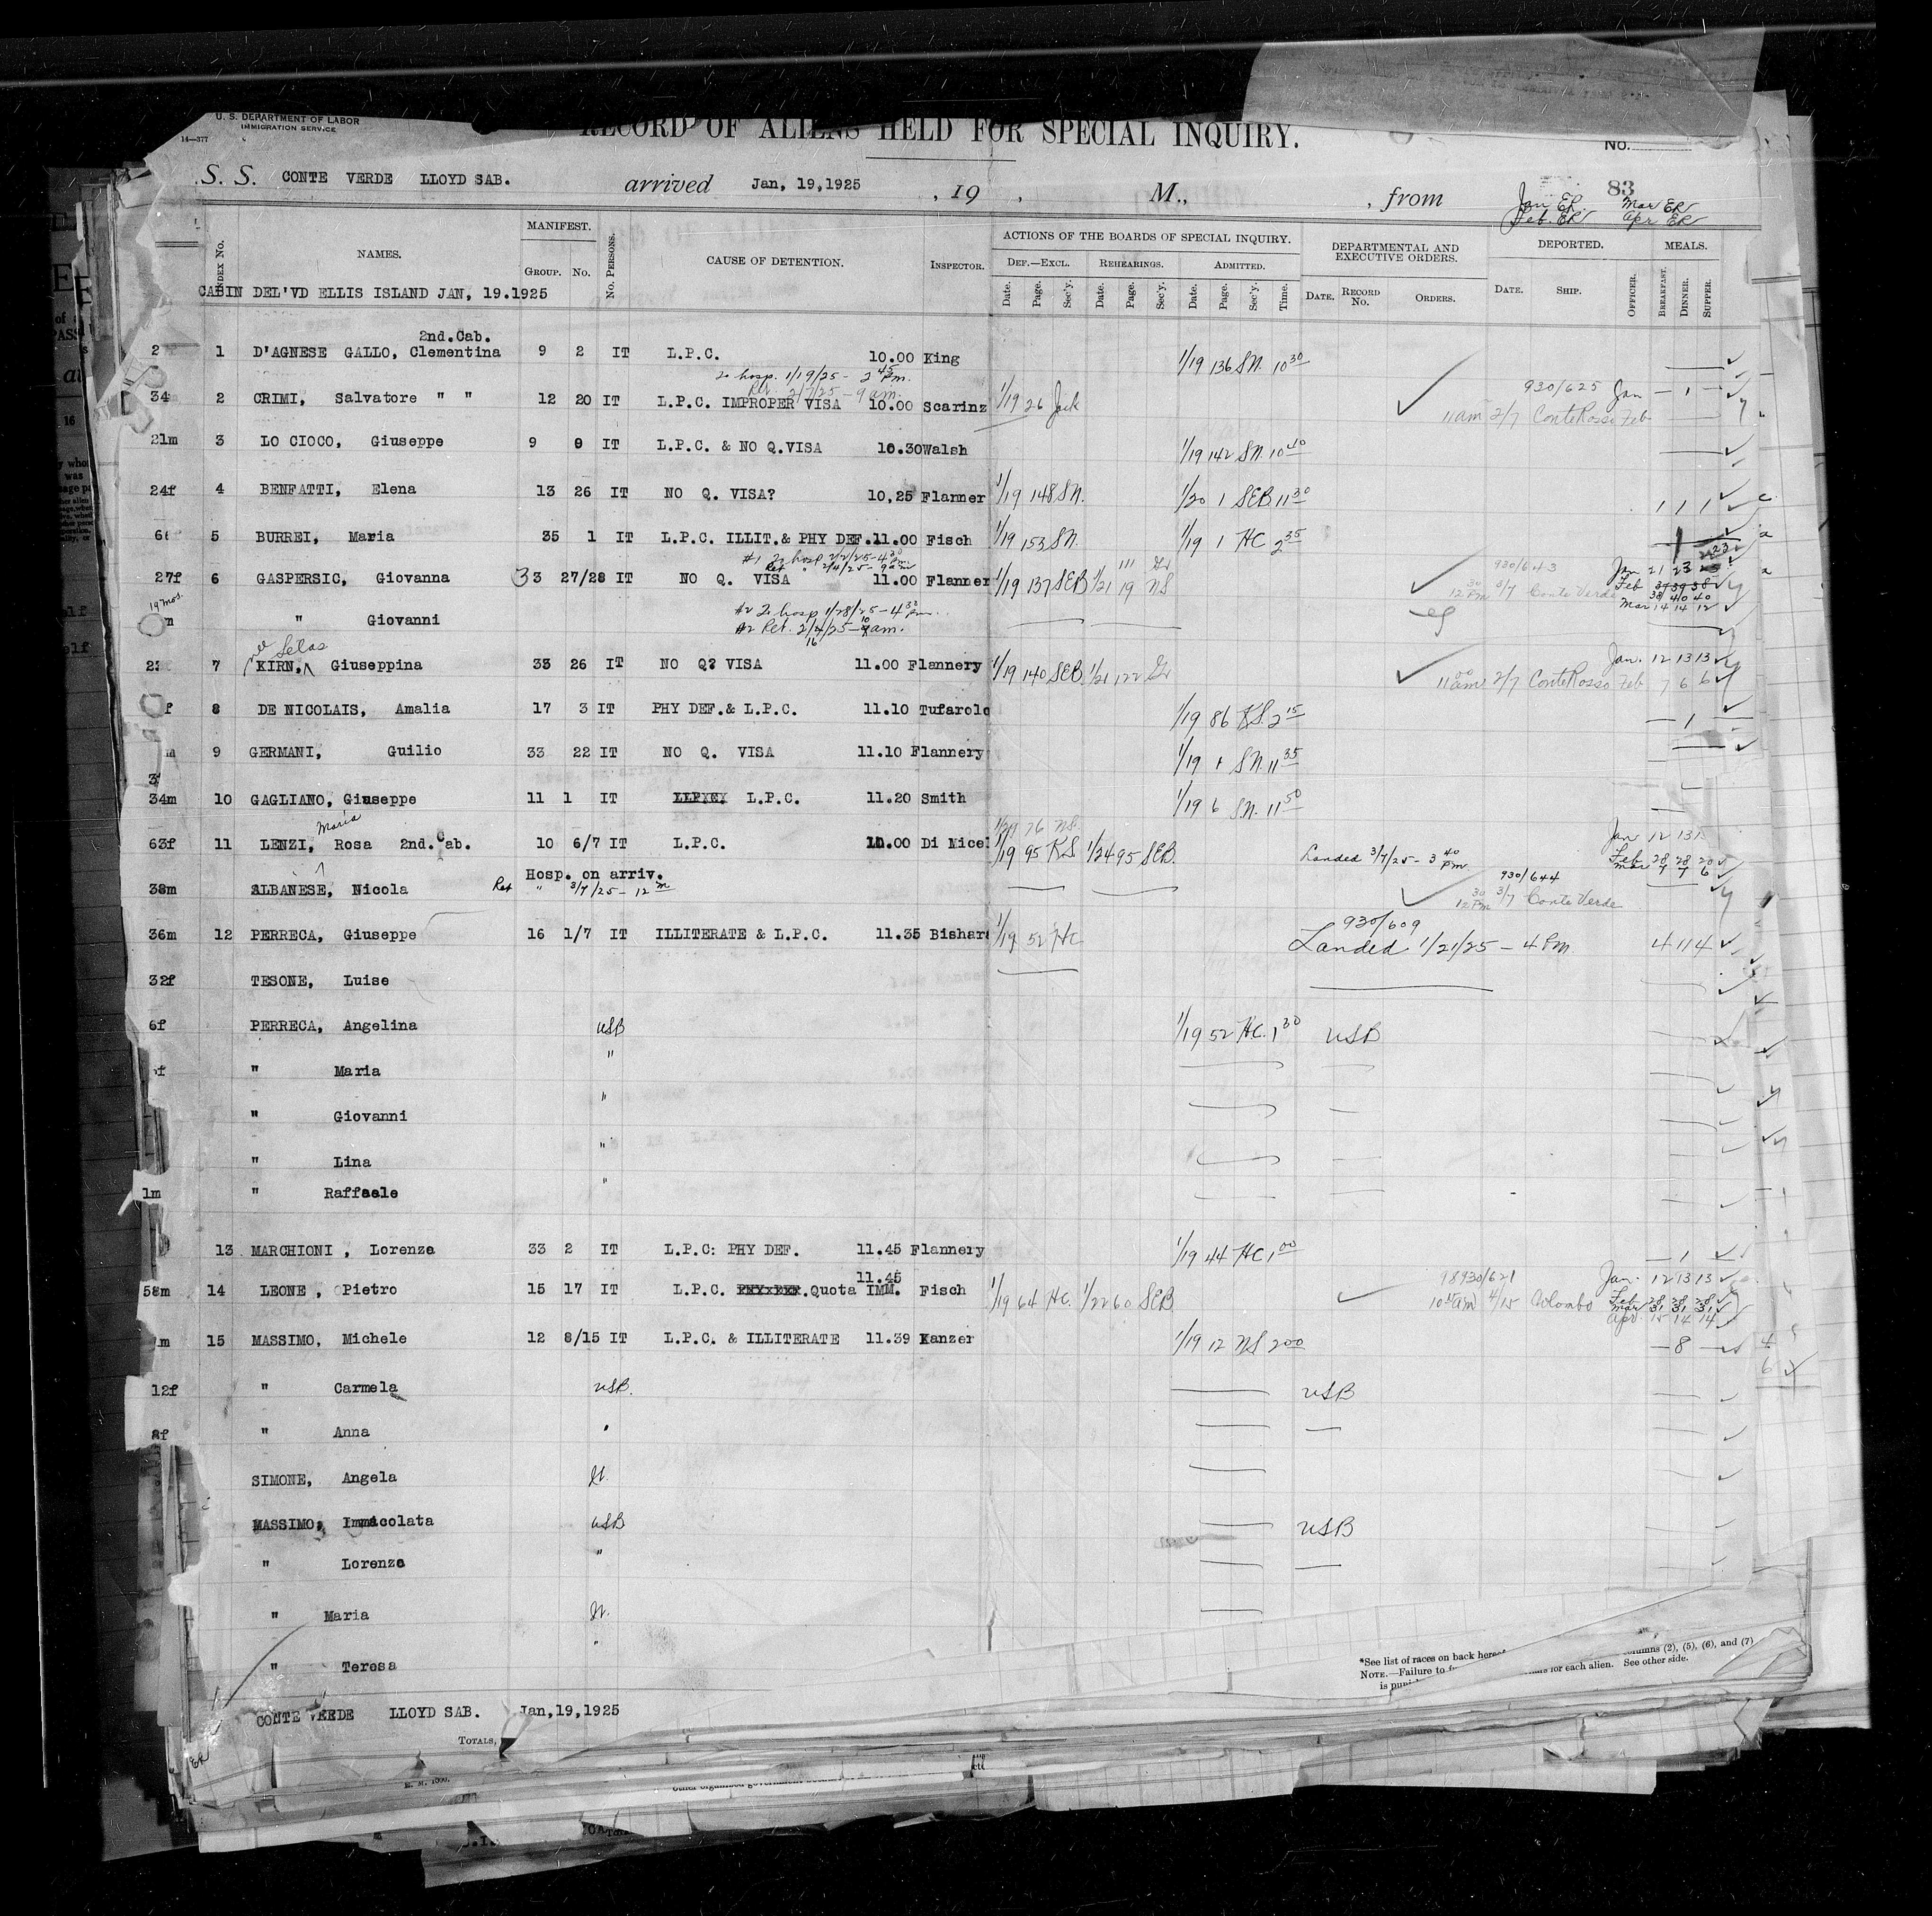 U. S. DEPARTMENT OF LABOR
IMMIGRATION SERVICE
14—377
RECORD OF ALIENS HELD FOR SPECIAL INQUIRY.
No.
83
S. S. CONTE VERDE LLOYD SAB. arrived Jan, 19,1925 , 19 , M., , from
Jan ER. Mar ER
Feb. ER Apr ER
INDEX NO. NAMES. MANIFEST. GROUP. NO. NO. PERSONS. CAUSE OF DETENTION. INSPECTOR. ACTIONS OF THE BOARDS OF SPECIAL INQUIRY. DEPARTMENTAL AND EXECUTIVE ORDERS. DEPORTED. MEALS.
DEF.—EXCL. REHEARINGS. ADMITTED.
Date. Page. Sec'y. Date. Page. Sec'y. Date. Page. Sec'y. Time. DATE. RECORD NO. ORDERS. DATE. SHIP. OFFICER. BREAKFAST. DINNER. SUPPER.
CABIN DEL'VD ELLIS ISLAND JAN, 19.1925
2nd. Cab.
2 1 D'AGNESE GALLO, Clementina 9 2 IT L.P.C. 10.00 King 1/19 136 SN. 10 30
To hosp. 1/19/25 - 2 45 Pm.
Ret. 2/7/25 - 9 am.
34m 2 CRIMI, Salvatore " " 12 20 IT L.P.C. IMPROPER VISA 10.00 Scarinz 1/19 26 Jack 930/625 Jan — 1 —
11 am 2/7 Conte Rosso Feb
21m 3 LO CIOCO, Giuseppe 9 9 IT L.P.C. & NO Q.VISA 10.30 Walsh 1/19 142 SN. 10 40
24f 4 BENFATTI, Elena 13 26 IT NO Q. VISA? 10,25 Flanner 1/19 148 SN. 1/20 1 SEB 11 30 1 1 1
5 BURREI, Maria 35 1 IT L.P.C. ILLIT.& PHY DEF. 11.00 Fisch 1/19 153 SN. 1/19 1 HC 2 35 1
#1 To hosp 2/2/25-4 30 Pm.
Ret " 2/4/25-9 am
27f 6 GASPERSIC, Giovanna 33 27/28 IT NO Q. VISA 11.00 Flanner 1/19 137 SEB 1/21 19 NS 930/643 Jan 21 23
12 30 Pm 3/7 Conte Verde Feb
Mar 14 14 12
19 mos.
" Giovanni #2 To hosp 1/28/25-4 30 Pm.
#2 Ret. 2/4/25- am.
nee Selas
7 KIRN, Giuseppina 33 26 IT NO Q? VISA 11.00 Flannery 1/19 140 SEB. 1/21 122 Gr Jan. 12 13 13
11 00 am 2/7 Conte Rosso Feb 7 6 6
8 DE NICOLAIS, Amalia 17 3 IT PHY DEF.& L.P.C. 11.10 Tufarolo 1/19 86 KS. 2 15 — 1 —
9 GERMANI, Guilio 33 22 IT NO Q. VISA 11.10 Flannery 1/19 1 SN. 11 35
34m 10 GAGLIANO, Giuseppe 11 1 IT L.P.C. 11.20 Smith 1/19 6 SN. 11 50
Maria
63f 11 LENZI, Rosa 2nd. Cab. 10 6/7 IT L.P.C. 11.00 Di Micel 1/19 95 KS 1/24 95 SEB. Landed 3/7/25- 3 40 Pm Jan 12 13
Feb 28 28 20
Mar 7 7 6
Hosp. on arriv.
38m ALBANESE, Nicola Ret " 3/7/25- 12 m 930/644
12 30 Pm 3/7 Conte Verde
36m 12 PERRECA, Giuseppe 16 1/7 IT ILLITERATE & L.P.C. 11.35 Bishara 1/19 52 HC 930/609
Landed 1/21/25 - 4 Pm 4 11 4
32f TESONE, Luise
6f PERRECA, Angelina USB 1/19 52 HC. 1 30 USB
f " Maria "
" Giovanni "
" Lina "
1m " Raffaele "
13 MARCHIONI , Lorenzo 33 2 IT L.P.C: PHY DEF. 11.45 Flannery 1/19 44 HC 1 00 — 1
11.45
58m 14 LEONE , Pietro 15 17 IT L.P.C. PHY DEF. Quota IMM. Fisch 1/19 64 HC. 1/22 60 SEB 98930/621 Jan. 12 13 13
10 45 am 4/15 Colombo Feb 28 28 28
Mar 31 31 31
Apr. 15 14 14
m 15 MASSIMO, Michele 12 8/15 IT L.P.C. & ILLITERATE 11.39 Kanzer 1/19 12 NS 2 00 — 8 —
12f " Carmela USB. USB
8f " Anna "
SIMONE, Angela It.
MASSIMO, Immacolata USB USB
" Lorenzo "
" Maria It.
" Teresa "
CONTE VERDE LLOYD SAB. Jan,19,1925
TOTALS,
*See list of races on back hereof
columns (2), (5), (6), and (7)
NOTE.—Failure to
for each alien. See other side.